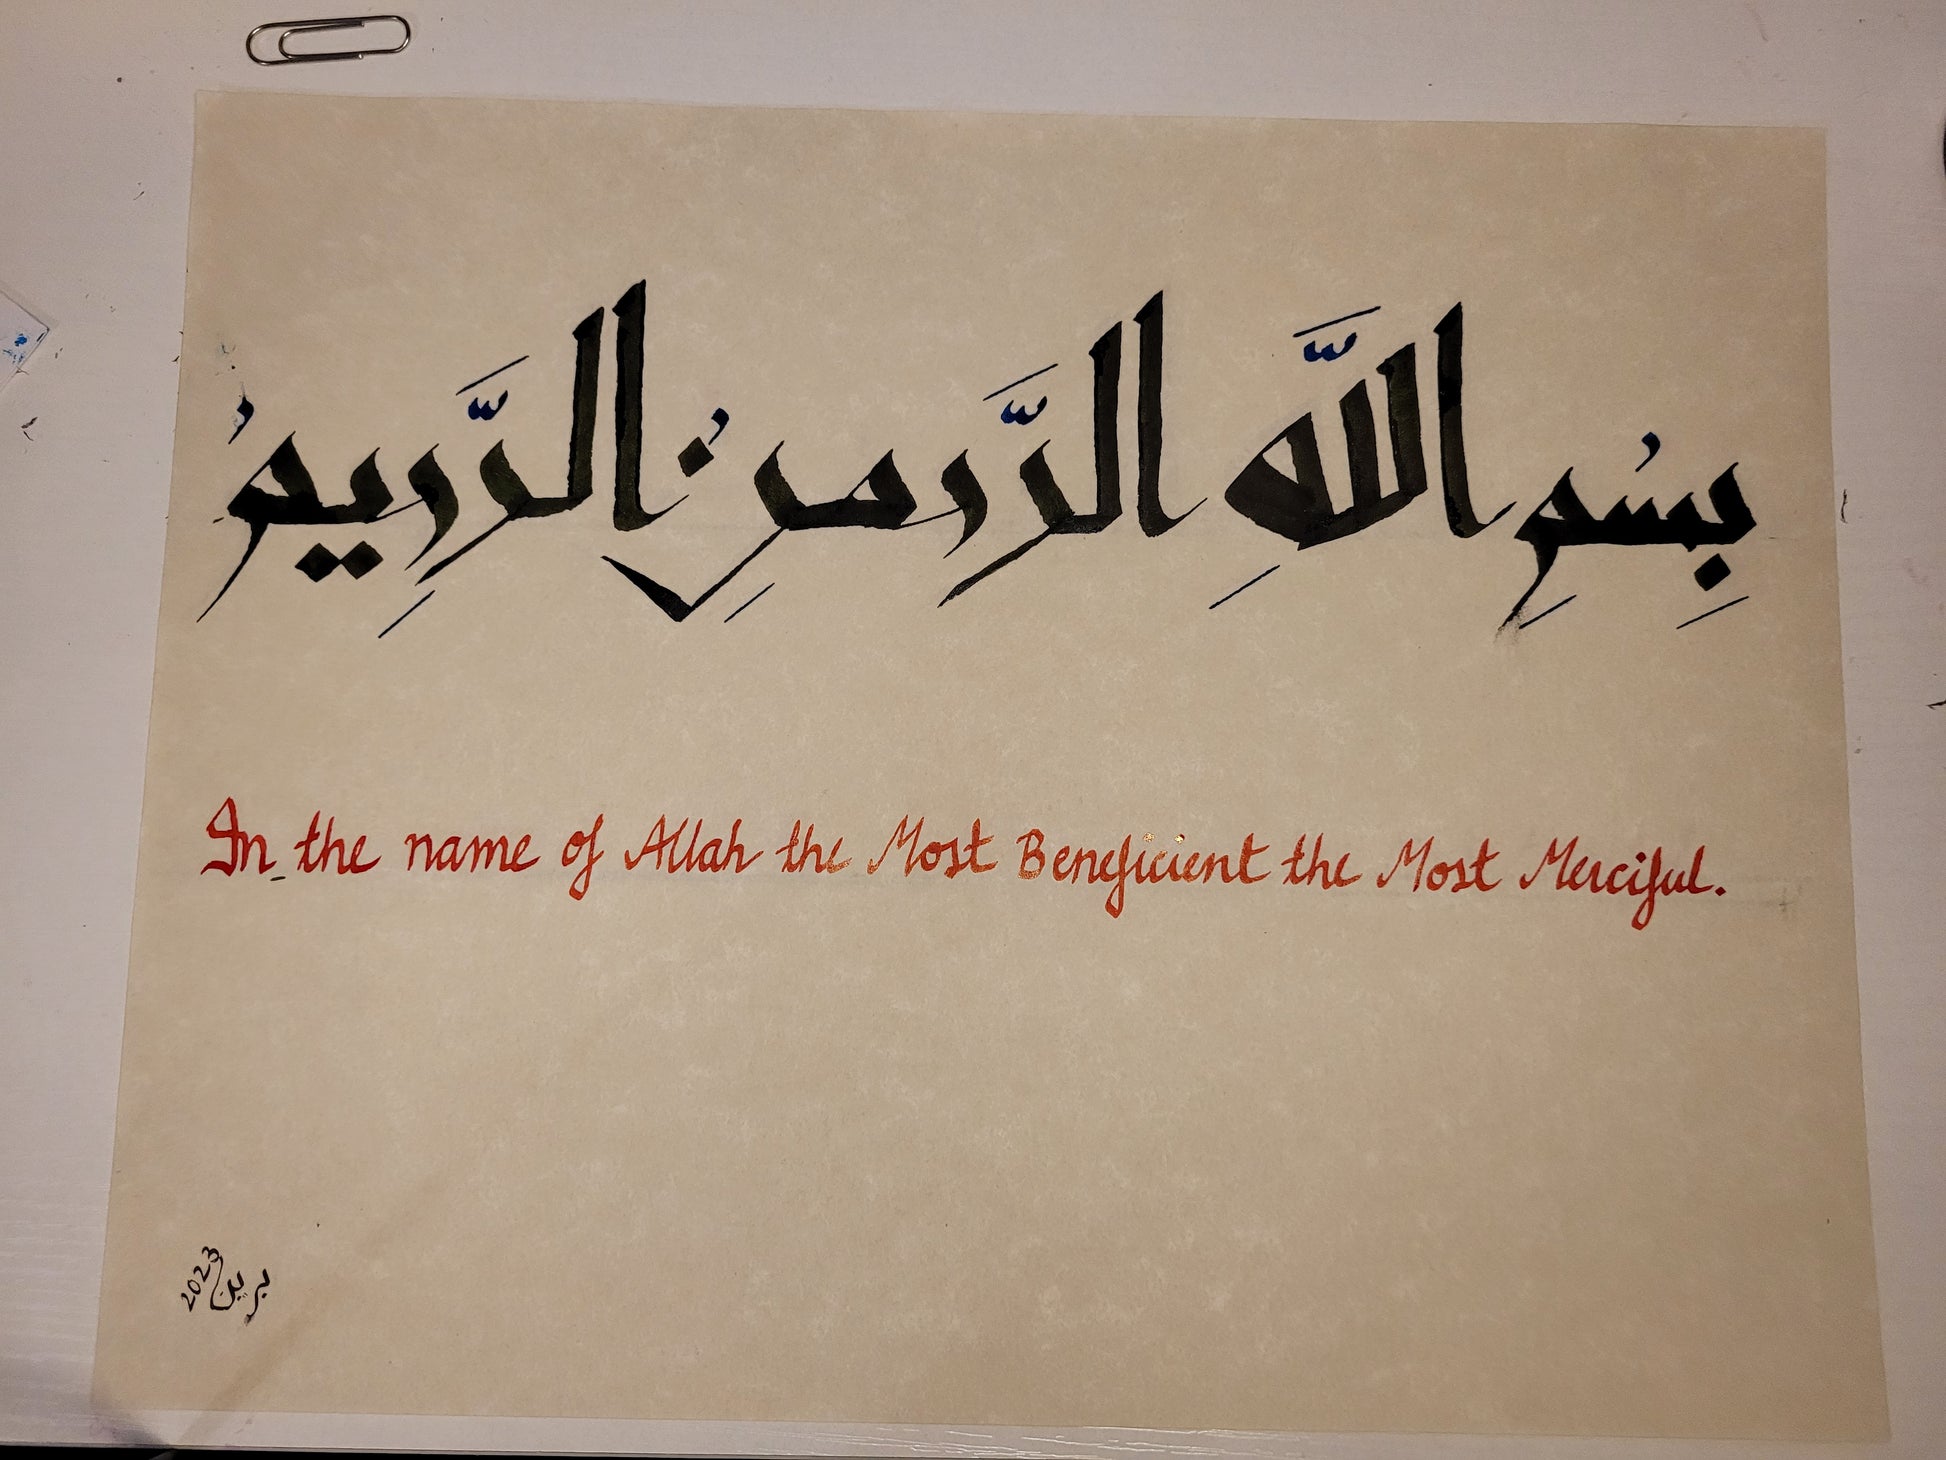 بِسْمِ اللَّهِ الرَّحمٰنِ الرَّحِيمْ
In the name of Allah the Most Beneficient the Most Merciful.
2023